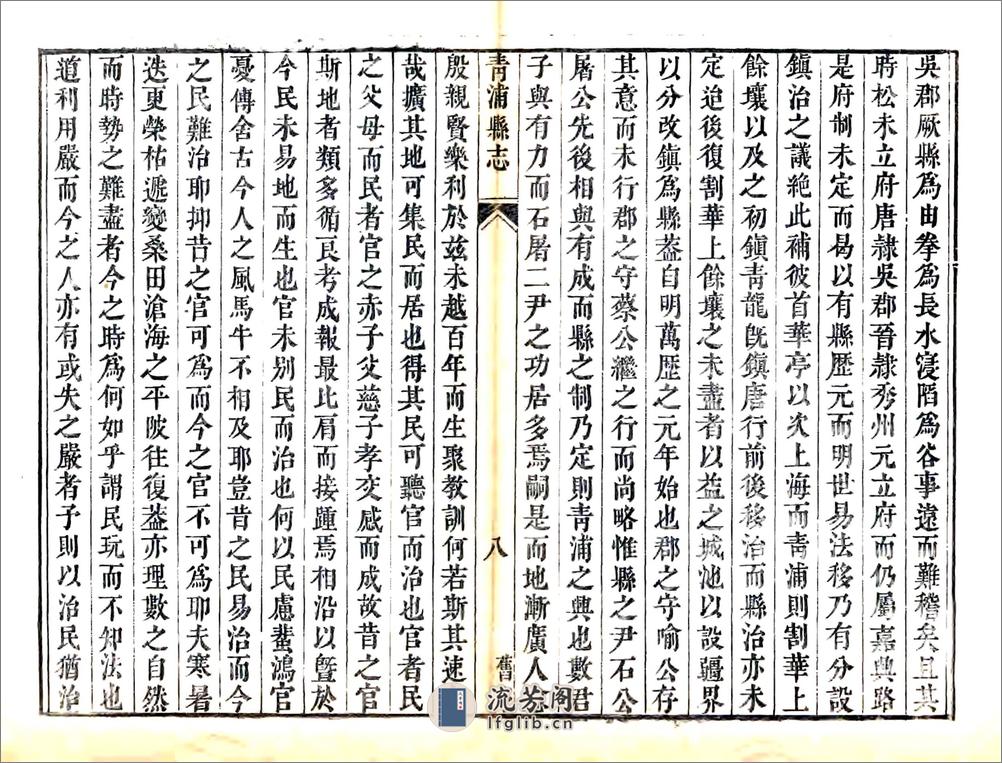 吳郡厥縣爲由拳爲長水寖陷爲谷事遠而難稽矣且其
時松未立府唐隷吳郡晉隷秀州元立府而仍屬嘉興路
是府制未定而曷以有縣歷元而明世易法移乃有分設
鎮治之議絶此補彼首華亭以次上海而靑浦則割華上
餘壤以及之初鎮靑龍旣鎮唐行前後移治而縣治亦未
定迨後復割華上餘壤之未盡者以益之城池以設疆界
以分改鎮爲縣葢自明萬歷之元年始也郡之守喻公存
其意而未行郡之守蔡公繼之行而尚略惟縣之尹石公
屠公先後相與有成而縣之制乃定則靑浦之興也數君
子與有力而石屠二尹之功居多焉嗣是而地漸廣人
靑浦縣志
八
舊
殷親賢樂利於兹未越百年而生聚教訓何若斯其速
哉擴其地可集民而居也得其民可聽官而治也官者民
之父母而民者官之赤子父慈子孝交感而成故昔之官
斯地者類多循良考成報最比肩而接踵焉相沿以曁於
今民未易地而生也官未别民而治也何以民慮蜚鴻官
憂傳舍古今人之風馬牛不相及耶豈昔之民易治而今
之民難治耶抑昔之官可爲而今之官不可爲耶夫寒暑
迭更榮枯遞變桑田滄海之平陂往復葢亦理數之自然
而時勢之難盡者今之時爲何如乎謂民玩而不知法也
道利用嚴而今之人亦有或失之嚴者子則以治民猶治
流芳阁
lfglib.cn